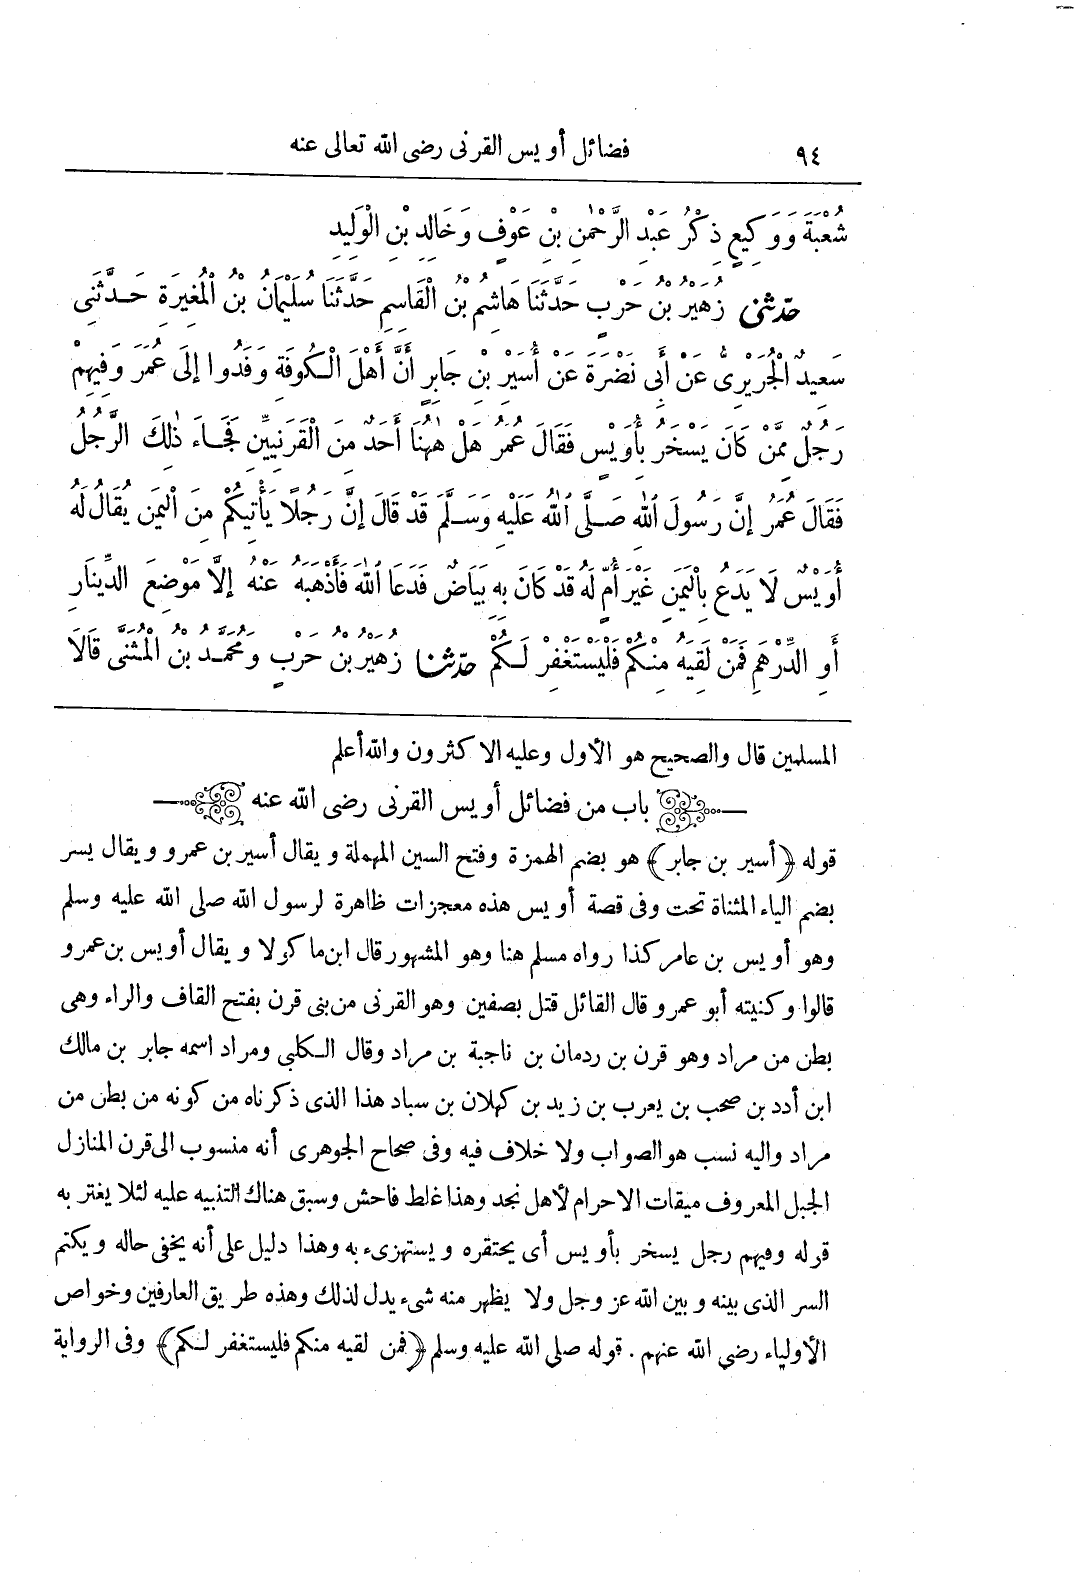 ٩٤ فضائل أويس القرنى رضى الله تعالى عنه
شُعْبَةَ وَوَكِيعٍ ذِكْرُ عَبْدِ الرَّحْمٰنِ بْنِ عَوْفٍ وَخَالِدِ بْنِ الْوَلِيدِ
حدّثنى زُهَيْرُ بْنُ حَرْبٍ حَدَّثَنَا هَاشِمُ بْنُ الْقَاسِمِ حَدَّثَنَا سُلَيْمَانُ بْنُ الْمُغِيرَةِ حَدَّثَنِى
سَعِيدٌ الْجُرَيْرِىُّ عَنْ أَبِى نَضْرَةَ عَنْ أُسَيْرِ بْنِ جَابِرٍ أَنَّ أَهْلَ الْكُوفَةِ وَفَدُوا إِلَى عُمَرَ وَفِيهِمْ
رَجُلٌ مِمَّنْ كَانَ يَسْخَرُ بِأُوَيْسٍ فَقَالَ عُمَرُ هَلْ هٰهُنَا أَحَدٌ مِنَ الْقَرَنِيِّينَ فَجَاءَ ذٰلِكَ الرَّجُلُ
فَقَالَ عُمَرُ إِنَّ رَسُولَ اللهِ صَلَّى اللهُ عَلَيْهِ وَسَلَّمَ قَدْ قَالَ إِنَّ رَجُلًا يَأْتِيكُمْ مِنَ الْيَمَنِ يُقَالُ لَهُ
أُوَيْسٌ لَا يَدَعُ بِالْيَمَنِ غَيْرَ أُمٍّ لَهُ قَدْ كَانَ بِهِ بَيَاضٌ فَدَعَا اللهَ فَأَذْهَبَهُ عَنْهُ إِلَّا مَوْضِعَ الدِّينَارِ
أَوِ الدِّرْهَمِ فَمَنْ لَقِيَهُ مِنْكُمْ فَلْيَسْتَغْفِرْ لَكُمْ حدّثنا زُهَيْرُ بْنُ حَرْبٍ وَمُحَمَّدُ بْنُ الْمُثَنَّى قَالَا
المسلمين قال والصحيح هو الأول وعليه الاكثرون والله أعلم
باب من فضائل أويس القرنى رضى الله عنه
قوله ﴿أسير بن جابر﴾ هو بضم الهمزة وفتح السين المهملة ويقال أسير بن عمرو ويقال يسر
بضم الياء المثناة تحت وفى قصة أويس هذه معجزات ظاهرة لرسول الله صلى الله عليه وسلم
وهو أويس بن عامر كذا رواه مسلم هنا وهو المشهور قال ابن ماكولا ويقال أويس بن عمرو
قالوا وكنيته أبو عمرو قال القائل قتل بصفين وهو القرنى من بنى قرن بفتح القاف والراء وهى
بطن من مراد وهو قرن بن ردمان بن ناجبة بن مراد وقال الكلبى ومراد اسمه جابر بن مالك
ابن أدد بن صحب بن يعرب بن زيد بن كهلان بن سباد هذا الذى ذكرناه من كونه من بطن من
مراد واليه نسب هو الصواب ولا خلاف فيه وفى صحاح الجوهرى أنه منسوب الى قرن المنازل
الجبل المعروف ميقات الاحرام لأهل نجد وهذا غلط فاحش وسبق هناك التنبيه عليه لئلا يغتر به
قوله وفيهم رجل يسخر بأويس أى يحتقره ويستهزىء به وهذا دليل على أنه يخفى حاله ويكتم
السر الذى بينه وبين الله عز وجل ولا يظهر منه شىء يدل لذلك وهذه طريق العارفين وخواص
الأولياء رضى الله عنهم . قوله صلى الله عليه وسلم ﴿فمن لقيه منكم فليستغفر لكم﴾ وفى الرواية